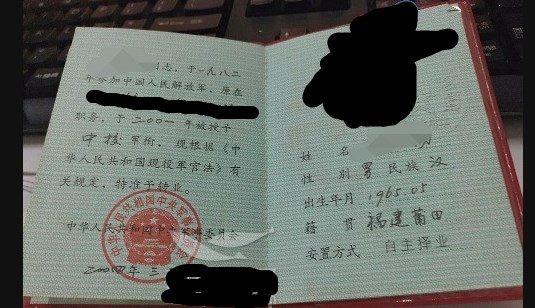 志，于一九八二
年参加中国人民解放军，原在
职务，于二00一年被授予
中校军衔，现根据《中
华人民共和国现役军官法》有
关规定，特准予转业。
中华人民共和国中央军事委员会
二00四年三
姓名
性别 男 民族 汉
出生年月 1965.05
籍贯 福建莆田
安置方式 自主择业